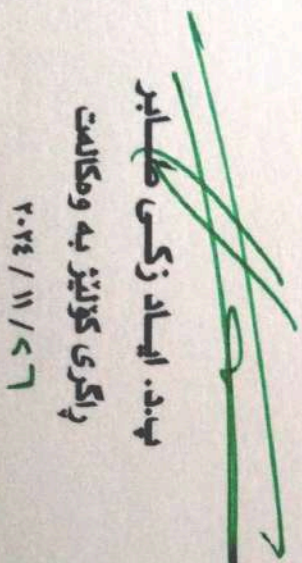 پ.د. ایساد زکی صابر
راگری کۆلێژ بە وەکالەت
٢٠٢٤ / ١١ / ٢٦